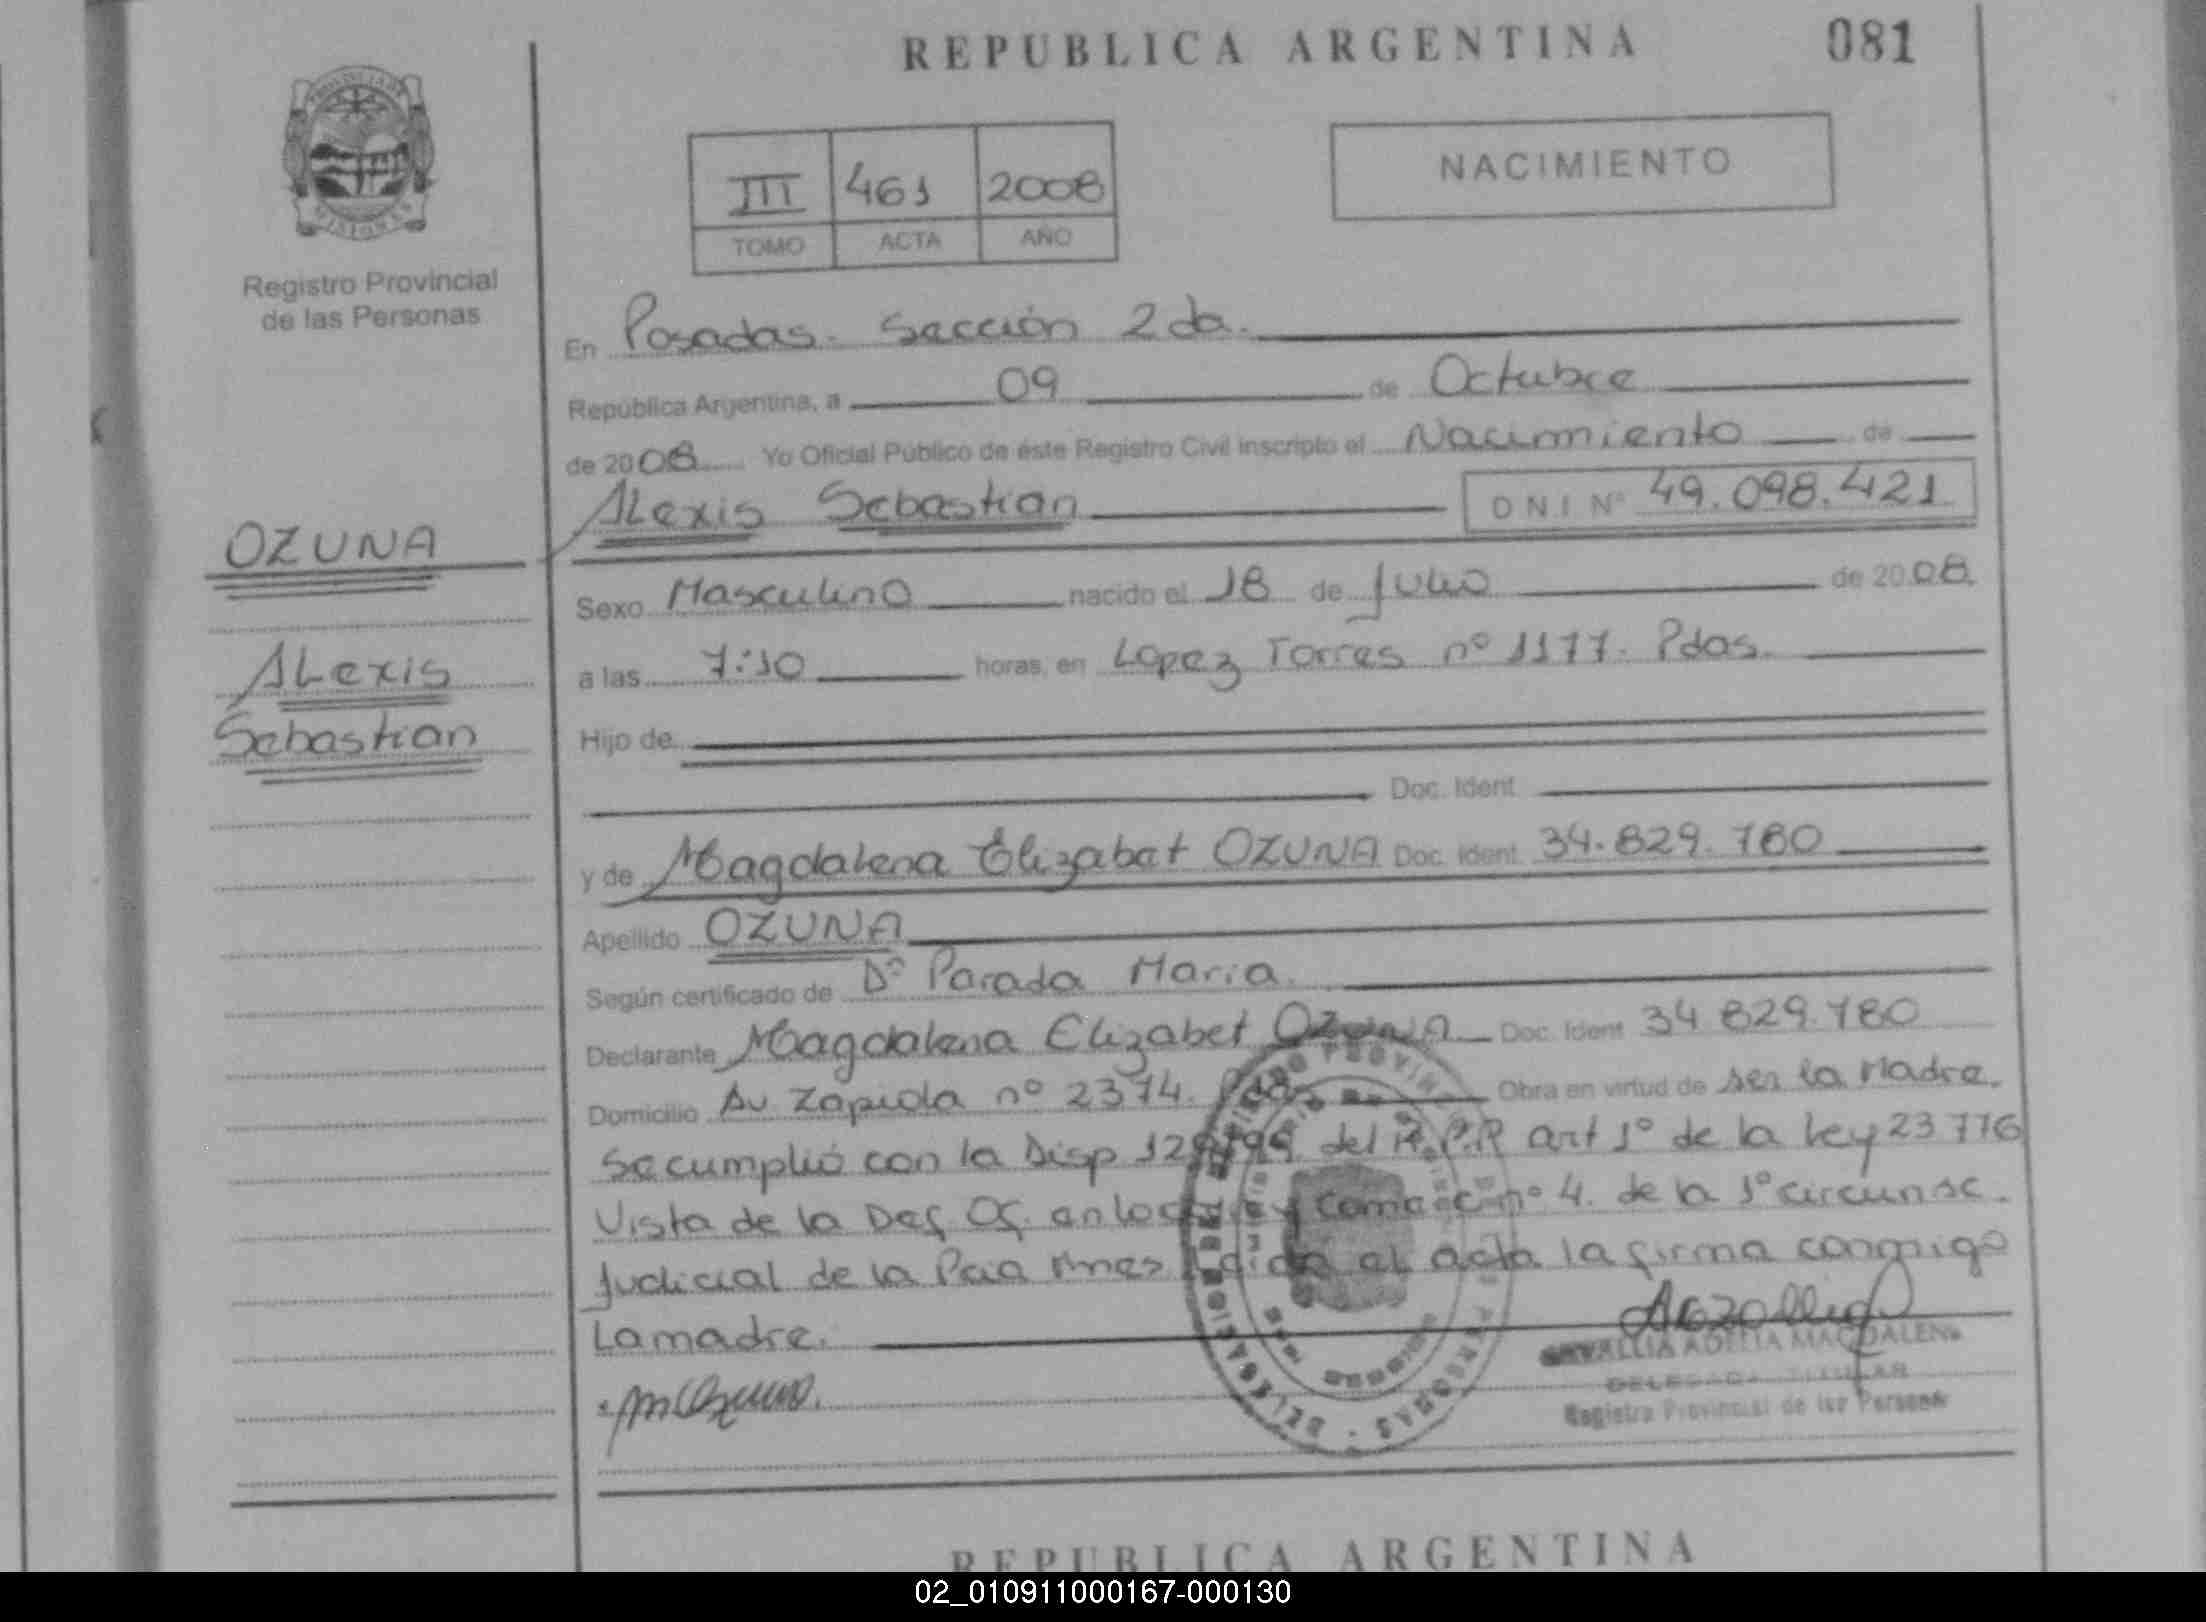 REPUBLICA ARGENTINA
081
III 461 2008
TOMO ACTA AÑO
NACIMIENTO
Registro Provincial
de las Personas
En Posadas. Sección 2da.
República Argentina, a 09 de Octubre
de 2008 Yo Oficial Público de éste Registro Civil inscripto el Nacimiento de
Alexis Sebastian D N I Nº 49.098.421
OZUNA
Alexis
Sebastian
Sexo Masculino nacido el 18 de Julio de 2008.
a las 7:10 horas, en Lopez Torres nº 1177. Pdas.
Hijo de
Doc. Ident
y de Magdalena Elizabet OZUNA Doc. Ident 34.829.780
Apellido OZUNA
Según certificado de Dª Parada Maria.
Declarante Magdalena Elizabet OZUNA Doc. Ident 34 829.780
Domicilio Av. Zapiola nº 2374. Pdas Obra en virtud de ser la Madre.
Se cumplió con la Disp del R.P.P art 1º de la Ley 23 776
Vista de la Def. Of. nº 4. de la 1º circunsc.
Judicial de la Pcia Mnes el acta la firma conmigo
La madre.
DELEGADA TITULAR
Registro Provincial de las Personas
REPUBLICA ARGENTINA
02_010911000167-000130